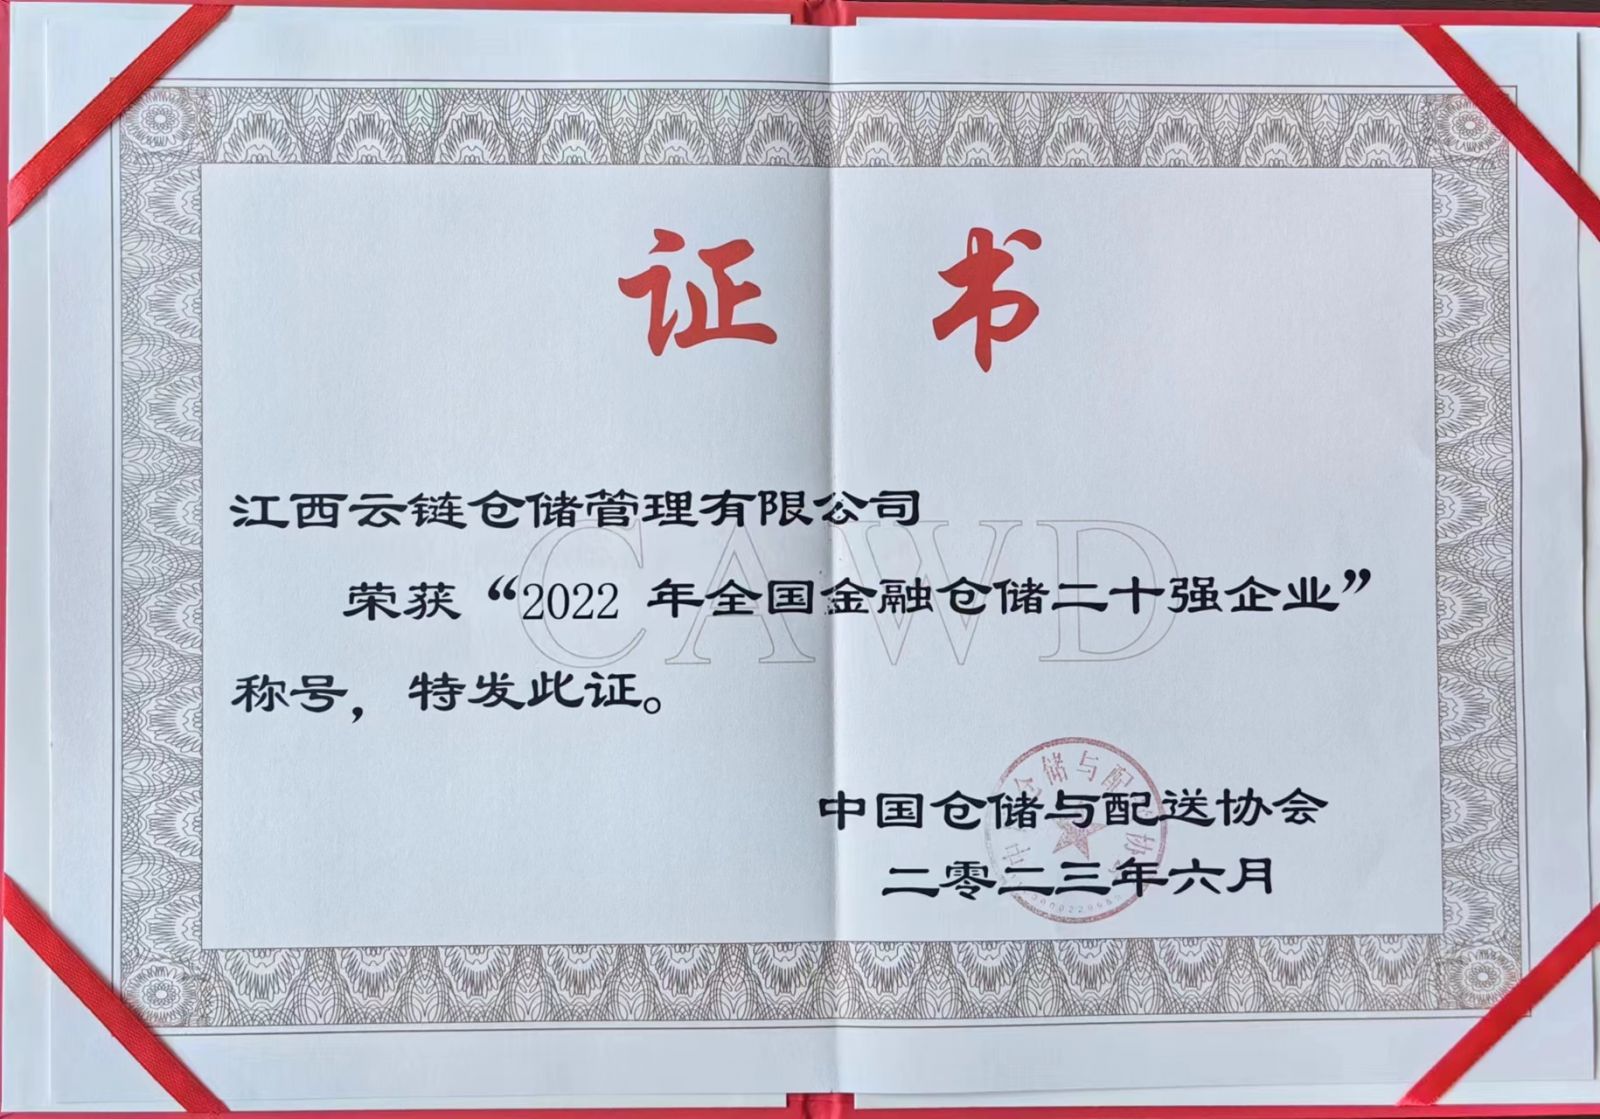 证 书
江西云链仓储管理有限公司
荣获“2022 年全国金融仓储二十强企业”
称号，特发此证。
CAWD
中国仓储与配送协会
二零二三年六月